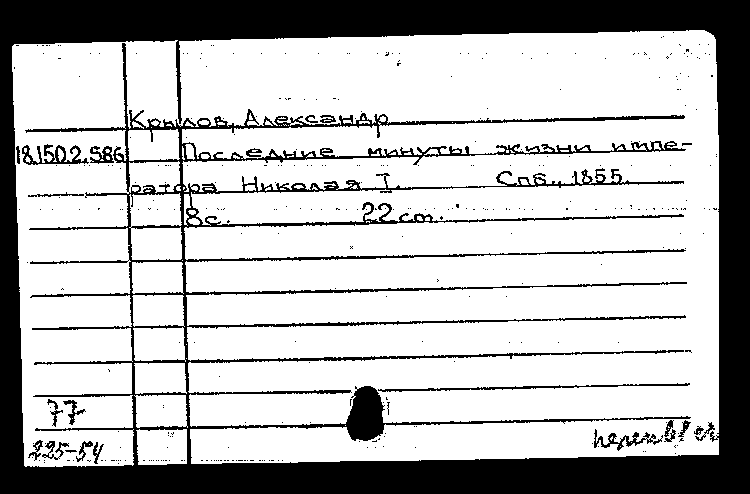 Крылов, Александр
18.150.2.586 Последние минуты жизни импе-
ратора Николая I. Спб., 1855.
8с. 22 cm.
77
225-54